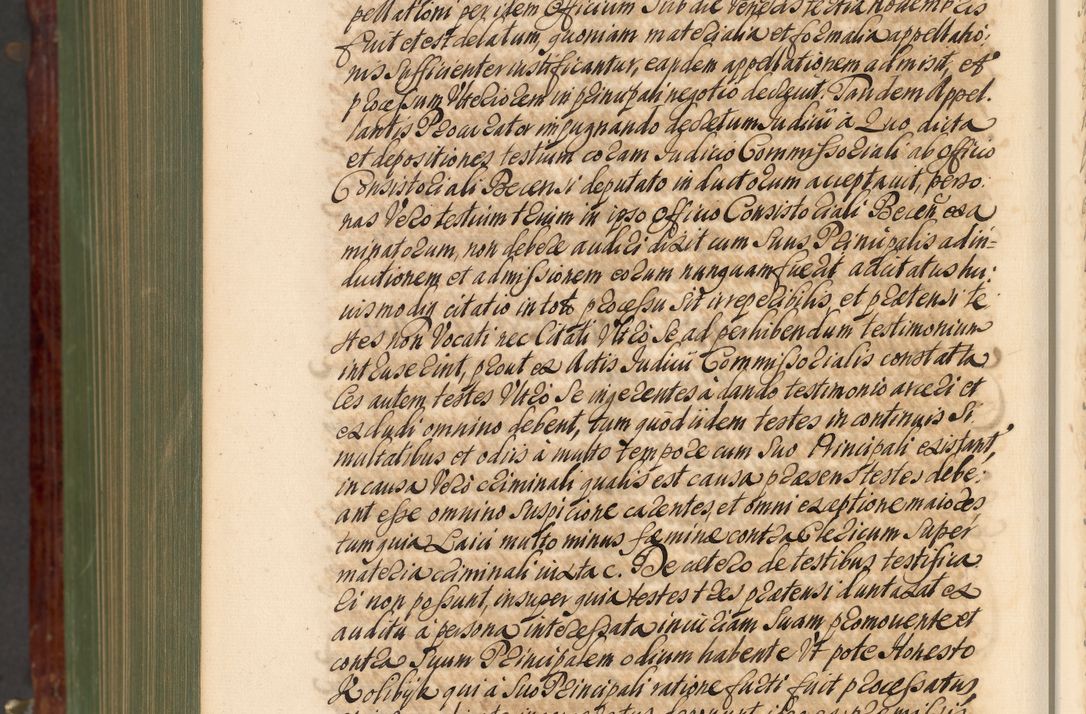 pellationi per idem Officium Sub die Veneris tertia Novembris
fuit et est delatum, quoniam materialia et formalia appellatio:
nis Sufficienter iustificantur, eandem appellationem admisit, et
processum Ulteriorem in principali negotio decrevit. Tandem Appel:
lantis Procurator impugnando decretum Iudicii a Quo, dicta
et depositiones testium coram Iudicio Commissoriali ab officio
Consistoriali Becensi deputato inductorum acceptavit, perso:
nas Vero testium trium in ipso Officio Consistoriali Becen̄ exa
minatorum, non debere audiri dixit cum Suus Principalis ad in=
ductionem et admissionem eorum nunquam fuerit adcitatus hu:
iusmodiq citatio in toto processu sit irreperibilis, et praetensi te
stes non Vocati nec Citati Ultro Se ad perhibendum testimonium
intruserint, prout ex Actis Iudicii Commissorialis constat ta
les autem testes Ultro Se ingerentes a dando testimonio arceri et
excludi omnino debent, tum quod iidem testes in continuis Si
multatibus et odiis a multo tempore cum Suo Principali existant
in causa Vero criminali qualis est causa praesens testes debe:
ant esse omnino Suspicione carentes, et omni exceptione maiores
tum quia Laici multo minus faeminae contra Clericum Super
materia criminali iuxta c. De caetero de testibus testifica
ri non possunt, insuper quia testes tres praetensi duntaxat ex
auditu a persona interessata iniuriam Suam promovente et
contra Suum Principalem odium habente Ut pote Honesto
Kolibyk qui a Suo Principali ratione furti fuit processatus